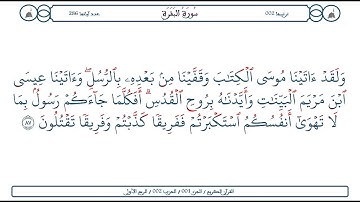 ترتيبها 002 سورة البقرة عدد آياتها 286
وَلَقَدْ ءَاتَيْنَا مُوسَى ٱلْكِتَٰبَ وَقَفَّيْنَا مِنۢ بَعْدِهِۦ بِٱلرُّسُلِ ۖ وَءَاتَيْنَا عِيسَى
ٱبْنَ مَرْيَمَ ٱلْبَيِّنَٰتِ وَأَيَّدْنَٰهُ بِرُوحِ ٱلْقُدُسِ ۗ أَفَكُلَّمَا جَآءَكُمْ رَسُولٌۢ بِمَا
لَا تَهْوَىٰٓ أَنفُسُكُمُ ٱسْتَكْبَرْتُمْ فَفَرِيقًا كَذَّبْتُمْ وَفَرِيقًا تَقْتُلُونَ ٨٧
القرآن الكريم / الجزء 001 / الحزب 002 / الربع الأول